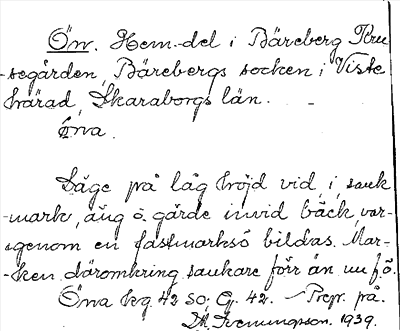 Önv. Hem-del i Bäreberg Kru
-segården, Bärebergs socken i Viste
härad, Skaraborgs län. -
Önva.
Läge på låg höjd vid, i, sank
-mark, äng o. gärde invid bäck, var-
igenom en fastmarksö bildas. Mar-
-ken däromkring sankare förr än nu f.ö.
Önva kg. 42 SO. G. 42. - Prep. på.